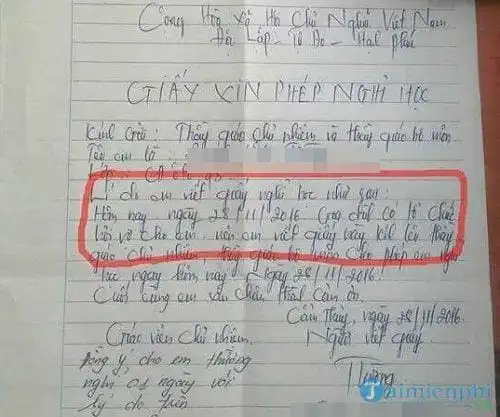 Cộng Hòa Xã Hội Chủ Nghĩa Việt Nam
Độc Lập - Tự Do - Hạnh Phúc
GIẤY XIN PHÉP NGHỈ HỌC
Kính Gửi: Thầy giáo chủ nhiệm và thầy giáo bộ môn
Tên em là:
Lý do em viết giấy nghỉ học như sau:
Hôm nay ngày 28/11/2016 Gia đình có tổ chức
cho em, nên em viết giấy này kính lên thầy
giáo chủ nhiệm, thầy giáo bộ môn cho phép em nghỉ
học ngày hôm nay. Ngày 28/11/2016.
Cuối cùng em xin chân thành cảm ơn.
Cẩm Thủy, ngày 28/11/2016.
Giáo viên chủ nhiệm. Người viết giấy
Đồng ý cho em Thưởng
nghỉ 01 ngày với
lý do trên
Thưởng
Taimienphi